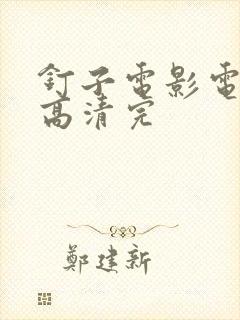 釘子電影電
高清完
鄭建新